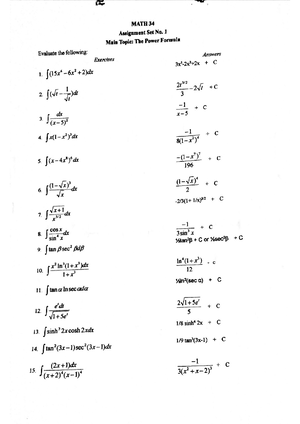 MATH 34
Assignment Set No. 1
Main Topic: The Power Formula
Evaluate the following:
Exercises Answers
1. ∫(15x⁴ −6x² +2)dx 3x⁵-2x³+2x + C
2. ∫(√t − 1/√t)dt 2t^(3/2)/3 − 2√t + C
3. ∫ dx/(x−5)² −1/(x−5) + C
4. ∫ x(1−x²)³dx −1/8(1−x²)⁴ + C
5. ∫ (x−4x⁸)⁶dx −(1−x⁷)⁷/196 + C
6. ∫ (1−√x)³/√x dx (1−√x)⁴/2 + C
7. ∫ √(x+1)/x^(5/2) dx -2/3(1+ 1/x)^(3/2) + C
8. ∫ cos x/sin⁴ x dx −1/3sin³ x + C
9. ∫ tan β sec² β dβ ½tan²β + C or ½sec²β + C
10. ∫ x² ln³(1+x³)dx/1+x³ ln⁴(1+x³)/12 + c
11. ∫ tan α ln sec α dα ½ln²(sec α) + C
12. ∫ eᵗdt/√(1+5eᵗ) 2√(1+5eᵗ)/5 + C
13. ∫ sinh³ 2x cosh 2x dx 1/8 sinh⁴ 2x + C
14. ∫ tan²(3x−1) sec²(3x−1)dx 1/9 tan³(3x-1) + C
15. ∫ (2x+1)dx/(x+2)⁴(x−1)⁴ −1/3(x²+x−2)³ + C